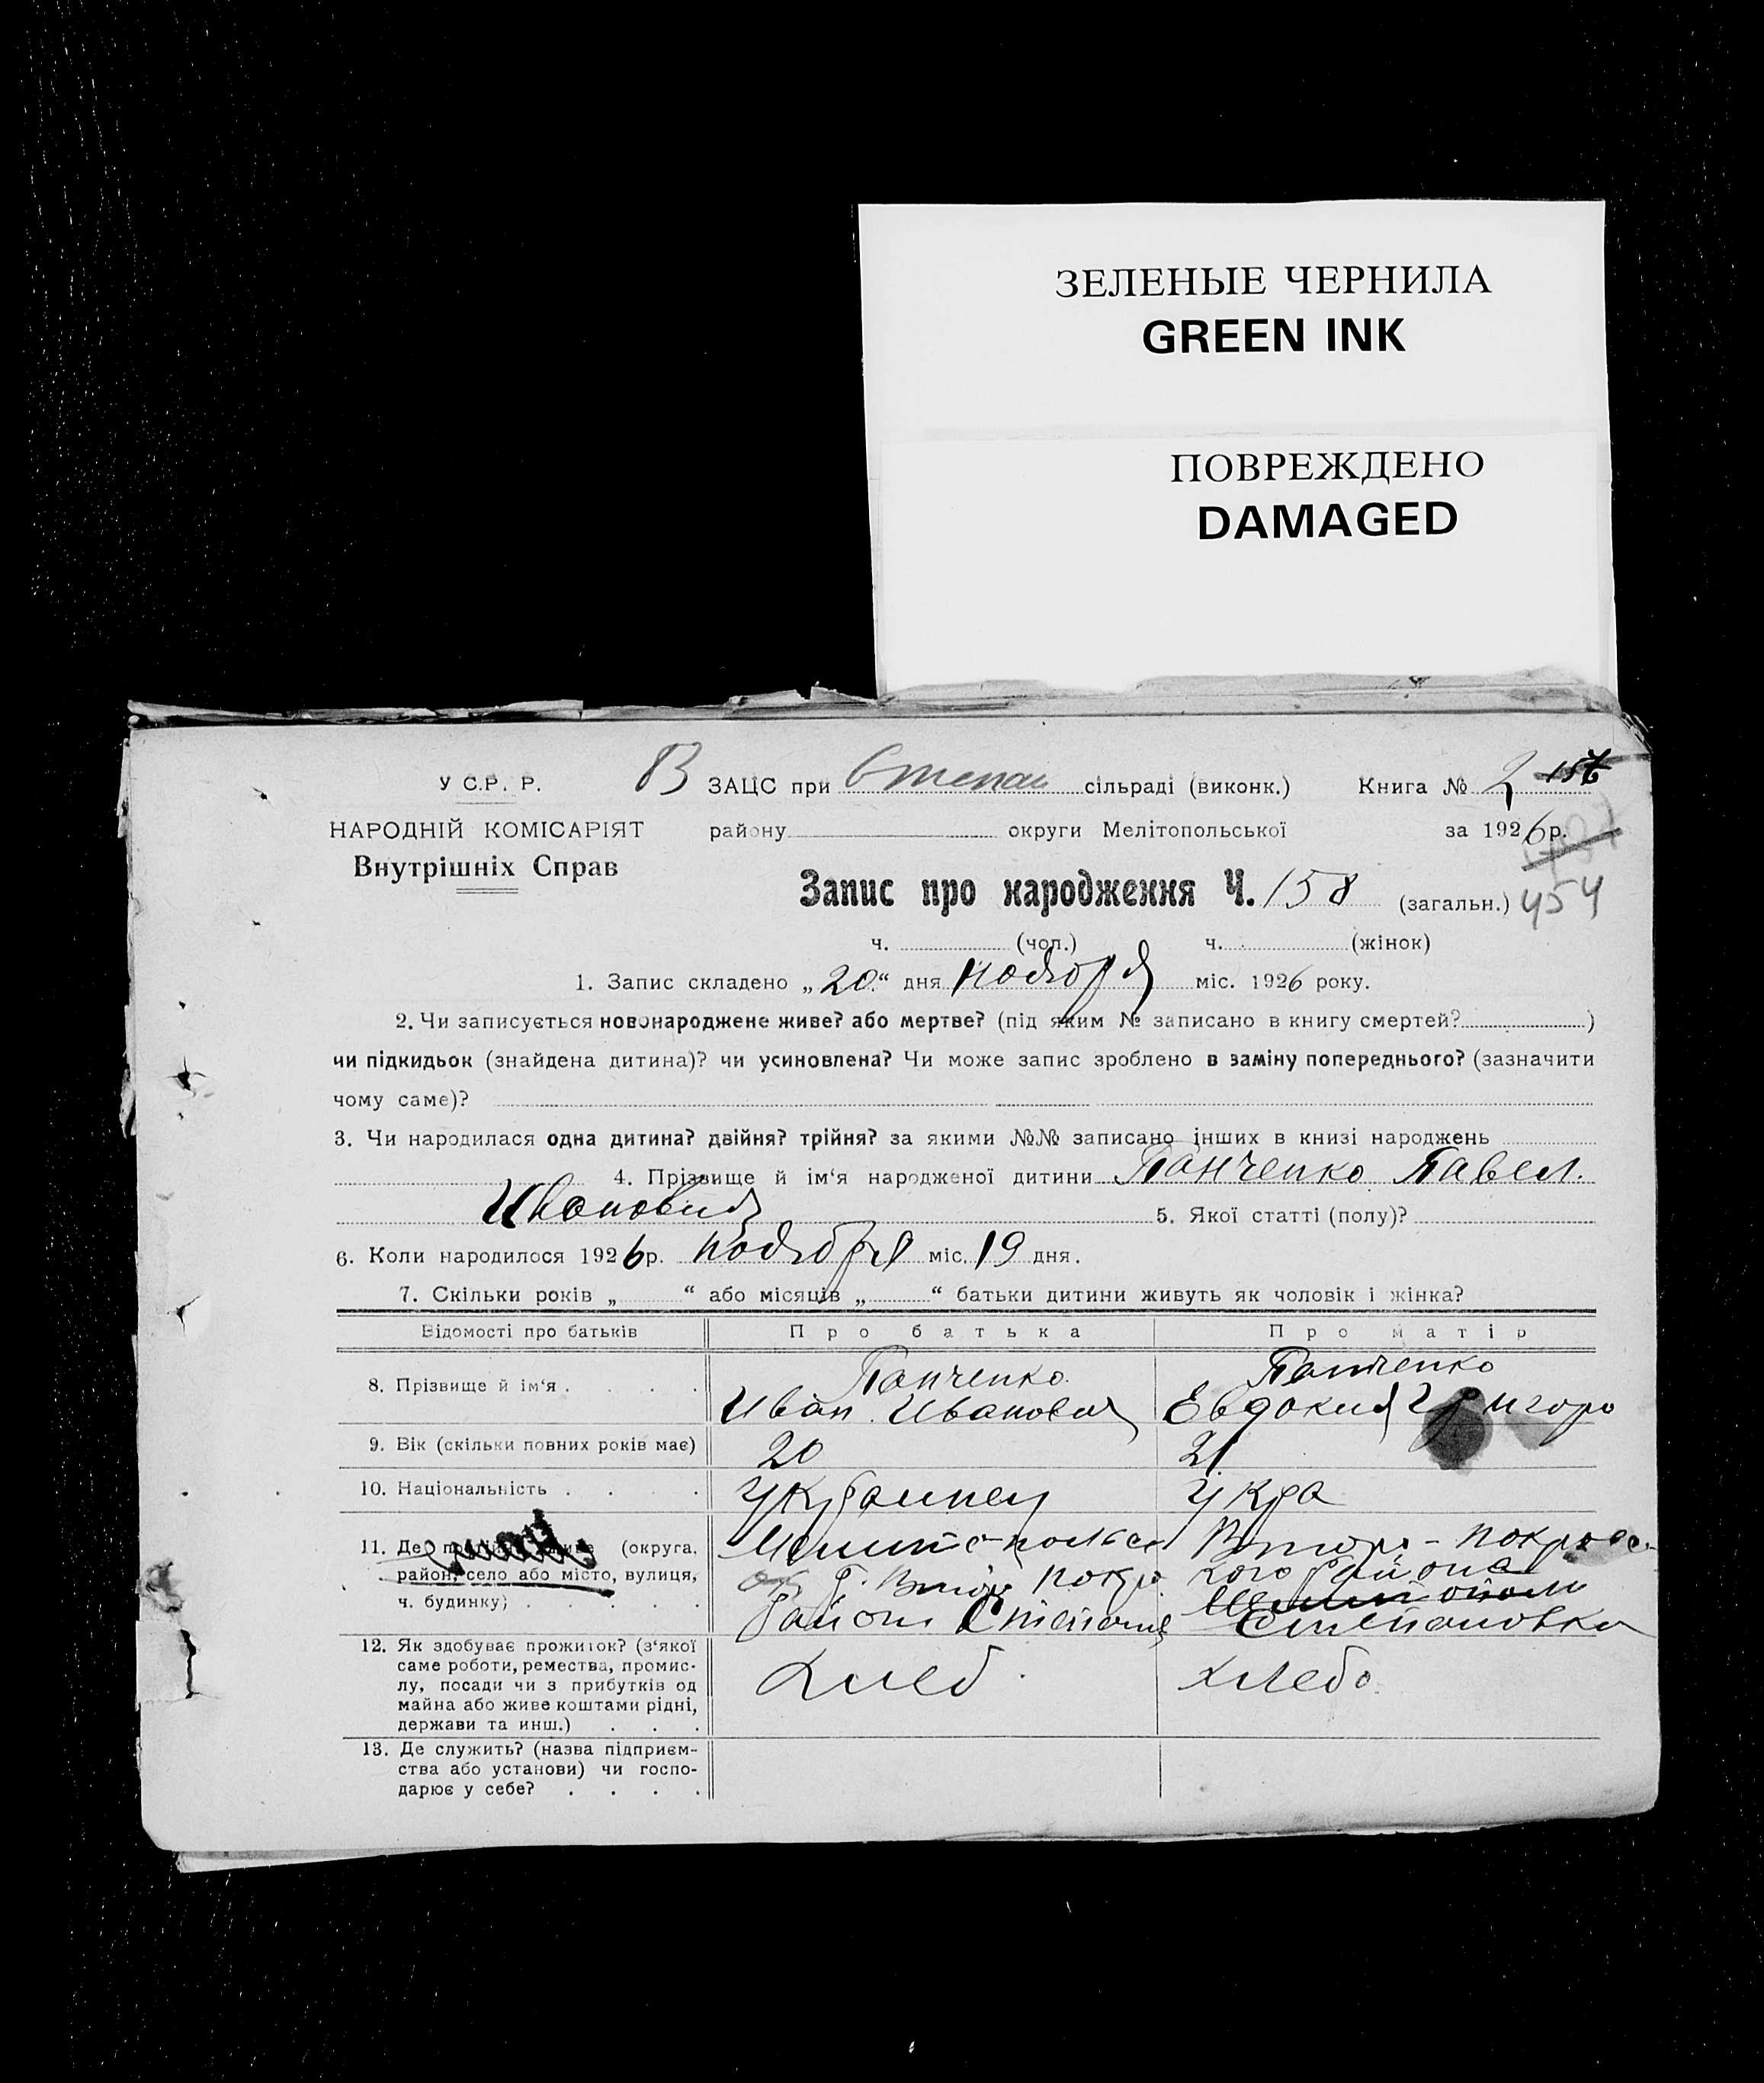 ЗЕЛЕНЫЕ ЧЕРНИЛА
GREEN INK
ПОВРЕЖДЕНО
DAMAGED
У С.Р. Р. В ЗАЦС при Степан сільраді (виконк.) Книга № 2
НАРОДНІЙ КОМІСАРІЯТ району округи Мелітопольської за 1926 р.
Внутрішніх Справ
Запис про народження Ч. 158 (загальн.) 454
ч. (чол.) ч. (жінок)
1. Запис складено „20“ дня ноября міс. 1926 року.
2. Чи записується новонароджене живе? або мертве? (під яким № записано в книгу смертей? )
чи підкидьок (знайдена дитина)? чи усиновлена? Чи може запис зроблено в заміну попереднього? (зазначити
чому саме)?
3. Чи народилася одна дитина? двійня? трійня? за якими №№ записано інших в книзі народжень
4. Прізвище й ім‘я народженої дитини Панченко Павел.
Иванович 5. Якої статті (полу)?
6. Коли народилося 1926 р. ноября міс. 19 дня.
7. Скільки років „ “ або місяців „ “ батьки дитини живуть як чоловік і жінка?
Відомості про батьків Про батька Про матір
Панченко Панченко
8. Прізвище й ім‘я . . . . Иван Иванович Евдокия Григоро
9. Вік (скільки повних років має) 20 21
10. Національність . . . . Украинец Укра
11. Де живе (округа, Мелитопольск Второ-покровс-
район, село або місто, вулиця, ок Втор Покро кого района
ч. будинку) . . . . . район Степано Степановка
12. Як здобуває прожиток? (з‘якої
саме роботи, ремества, промис- Хлеб Хлебо
лу, посади чи з прибутків од
майна або живе коштами рідні,
держави та инш.) . . .
13. Де служить? (назва підприєм-
ства або установи) чи госпо-
дарює у себе? . . . .